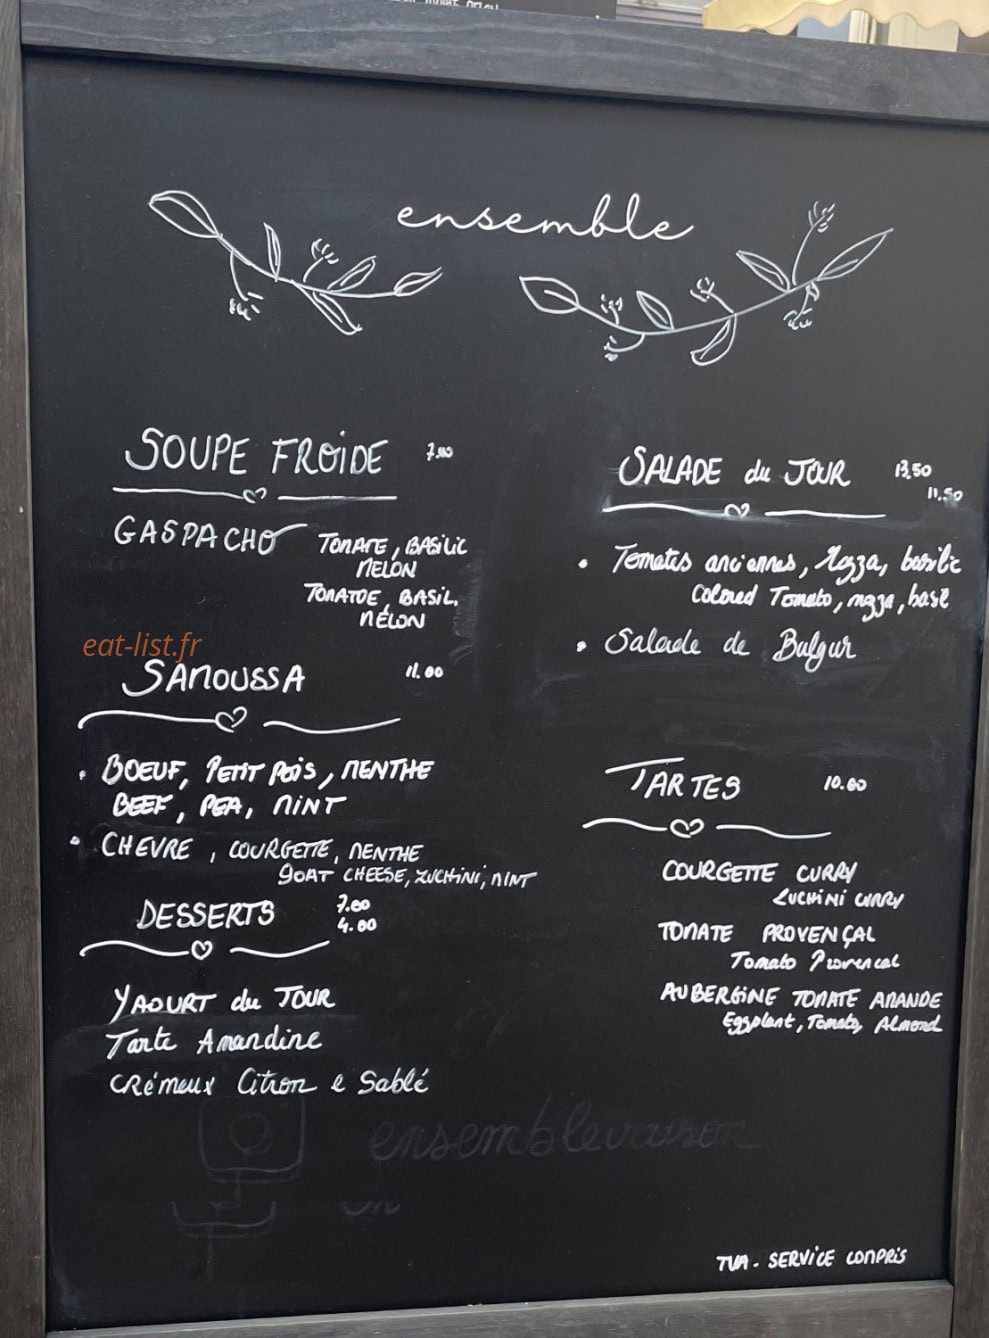 ensemble
SOUPE FROIDE 7.00
GASPACHO TOMATE, BASILIC
MELON
TOMATOE, BASIL,
MELON
eat-list.fr
SAMOUSSA 11.00
• BOEUF, PETIT POIS, MENTHE
BEEF, PEA, MINT
• CHEVRE, COURGETTE, MENTHE
GOAT CHEESE, ZUCHINI, MINT
DESSERTS 7.00
4.00
YAOURT du JOUR
Tarte Amandine
CRÉMEUX Citron e Sablé
ensemblevaison
SALADE du JOUR 13,50
11.50
• Tomates anciennes, Mozza, basilic
Colored Tomato, mozza, basil
• Salade de Bulgur
TARTES 10.00
COURGETTE CURRY
ZUCHINI CURRY
TOMATE PROVENÇAL
Tomato Provencal
AUBERGINE TOMATE AMANDE
Eggplant, Tomato, Almond
TVA. SERVICE COMPRIS